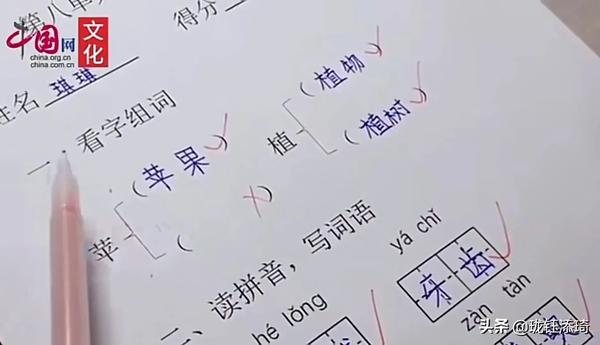 第八单
得分
中国网
文化
china.org.cn
china.com.cn
姓名 琪琪
一、看字组词
苹 (苹果)
( )
植 (植物)
(植树)
二、读拼音，写词语
yá chǐ
牙齿
hé lǒng
zàn tàn
头条 @垅钰添琦